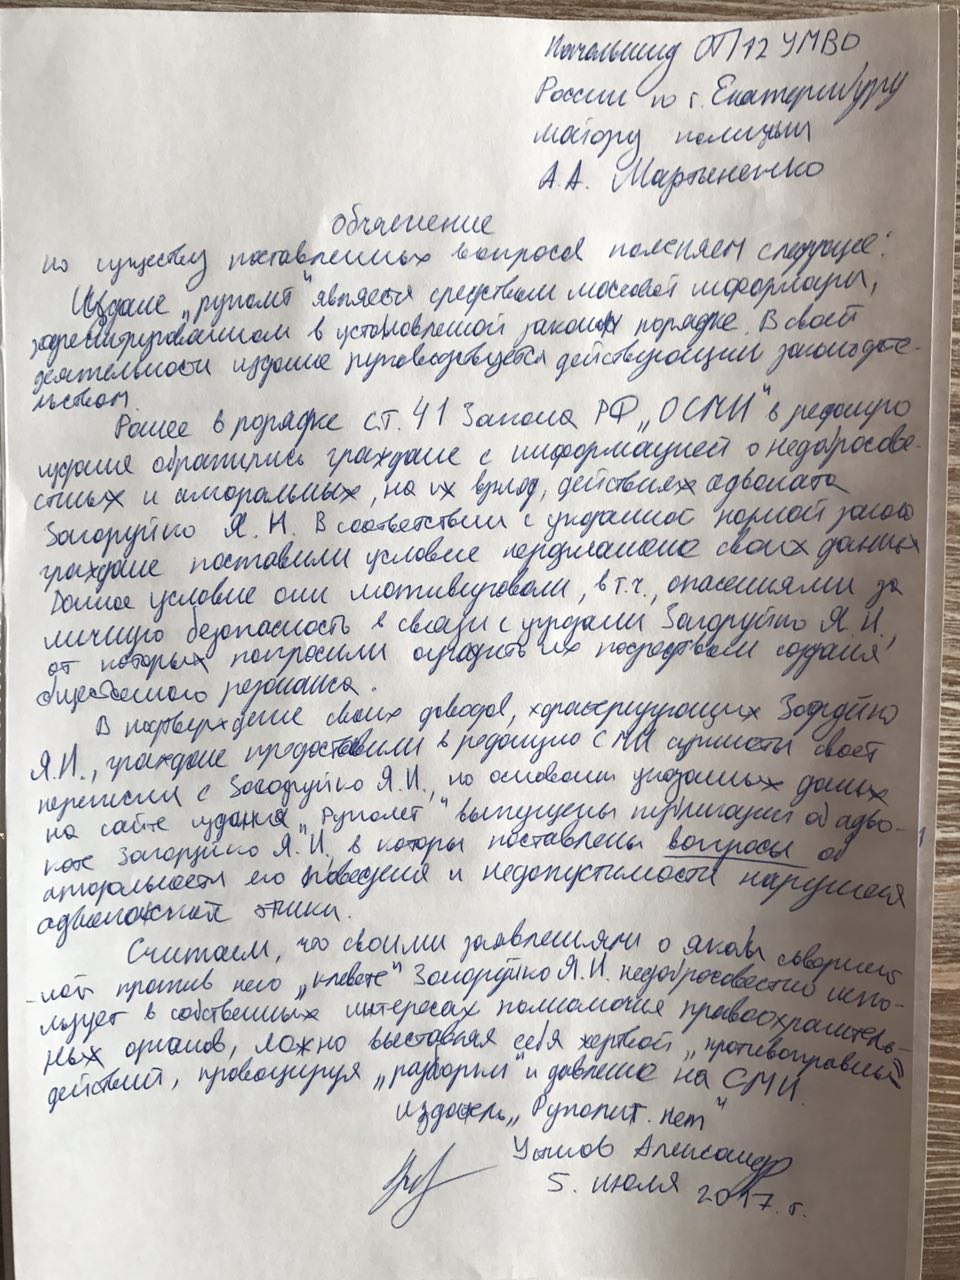 Начальнику ОП 12 УМВД
России по г. Екатеринбургу
майору полиции
А.А. Мартыненко
Объяснение
по существу поставленных вопросов поясняем следующее:
Издание „руполит" является средством массовой информации,
зарегистрированном в установленной законом порядке. В своей
деятельности издание руководствуется действующим законодате-
льством.
Ранее в порядке ст. 41 Закона РФ „О СМИ" в редакцию
издания обратились граждане с информацией о недобросове-
стных и аморальных, на их взгляд, действиях адвоката
Загоруйко Я. И. В соответствии с указанной нормой закона
граждане поставили условие неразглашение своих данных
Данное условие они мотивировали, в т.ч., опасениями за
личную безопасность в связи с угрозами Загоруйко Я. И.,
от которых попросили оградить их посредством создания
общественного резонанса.
В подтверждение своих доводов, характеризующих Загоруйко
Я.И., граждане предоставили в редакцию СМИ скриншоты своей
переписки с Загоруйко Я.И., по основании указанных данных
на сайте издания „Руполит" выпущены публикации об адво-
кате Загоруйко Я. И., в которы поставлены вопросы об
аморальности его поведения и недопустимости нарушения
адвокатской этики.
Считаем, что своими заявлениями о якобы
против него „клевете" Загоруйко Я.И. недобросовестно испо-
льзует в собственных интересах полномочия правоохранитель-
ных органов, ложно выставляя себя жертвой „противоправных"
действий, провоцируя „разборки" и давление на СМИ.
издатель „Руполит.нет"
Устинов Александр
5. июля 2017. г.